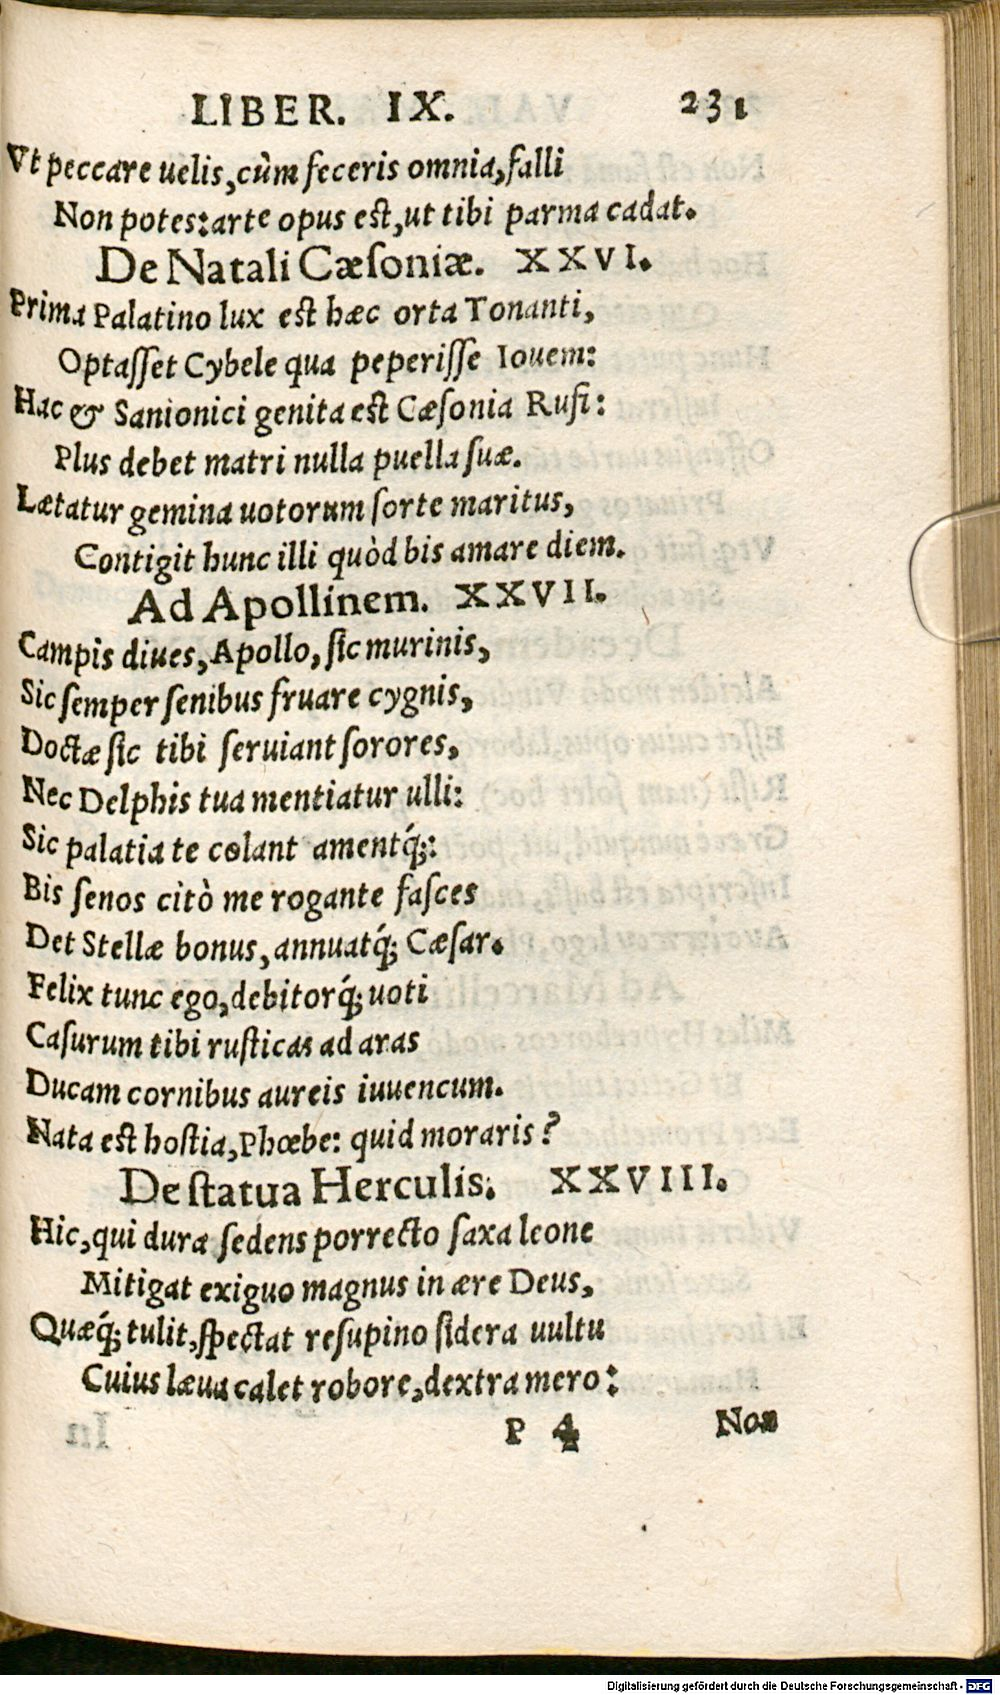 LIBER. IX. 231
Vt peccare uelis, cùm feceris omnia, falli
Non potes: arte opus est, ut tibi parma cadat.
De Natali Cæsoniæ. XXVI.
Prima Palatino lux est hæc orta Tonanti,
Optasset Cybele qua peperisse Iouem:
Hac & Sanionici genita est Cæsonia Rufi:
Plus debet matri nulla puella suæ.
Lætatur gemina uotorum sorte maritus,
Contigit hunc illi quòd bis amare diem.
Ad Apollinem. XXVII.
Campis diues, Apollo, sic murinis,
Sic semper senibus fruare cygnis,
Doctæ sic tibi seruiant sorores,
Nec Delphis tua mentiatur ulli:
Sic palatia te colant amentq́;:
Bis senos citò me rogante fasces
Det Stellæ bonus, annuatq́; Cæsar.
Felix tunc ego, debitorq́; uoti
Casurum tibi rusticas ad aras
Ducam cornibus aureis iuuencum.
Nata est hostia, Phœbe: quid moraris?
De statua Herculis. XXVIII.
Hic, qui dura sedens porrecto saxa leone
Mitigat exiguo magnus in ære Deus,
Quæq́; tulit, spectat resupino sidera uultu
Cuius læua calet robore, dextra mero:
P 4 Non
Digitalisierung gefördert durch die Deutsche Forschungsgemeinschaft - DFG